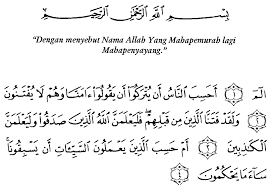 بِسْمِ اللَّهِ الرَّحْمَٰنِ الرَّحِيمِ
"Dengan menyebut Nama Allah Yang Mahapemurah lagi
Mahapenyayang."
الٓمٓ ۝١ أَحَسِبَ النَّاسُ أَن يُتْرَكُوٓا۟ أَن يَقُولُوٓا۟ ءَامَنَّا وَهُمْ لَا يُفْتَنُونَ
۝٢ وَلَقَدْ فَتَنَّا الَّذِينَ مِن قَبْلِهِمْ فَلَيَعْلَمَنَّ اللَّهُ الَّذِينَ صَدَقُوا۟ وَلَيَعْلَمَنَّ
الْكَٰذِبِينَ ۝٣ أَمْ حَسِبَ الَّذِينَ يَعْمَلُونَ السَّيِّـَٔاتِ أَن يَسْبِقُونَا
سَآءَ مَا يَحْكُمُونَ ۝٤